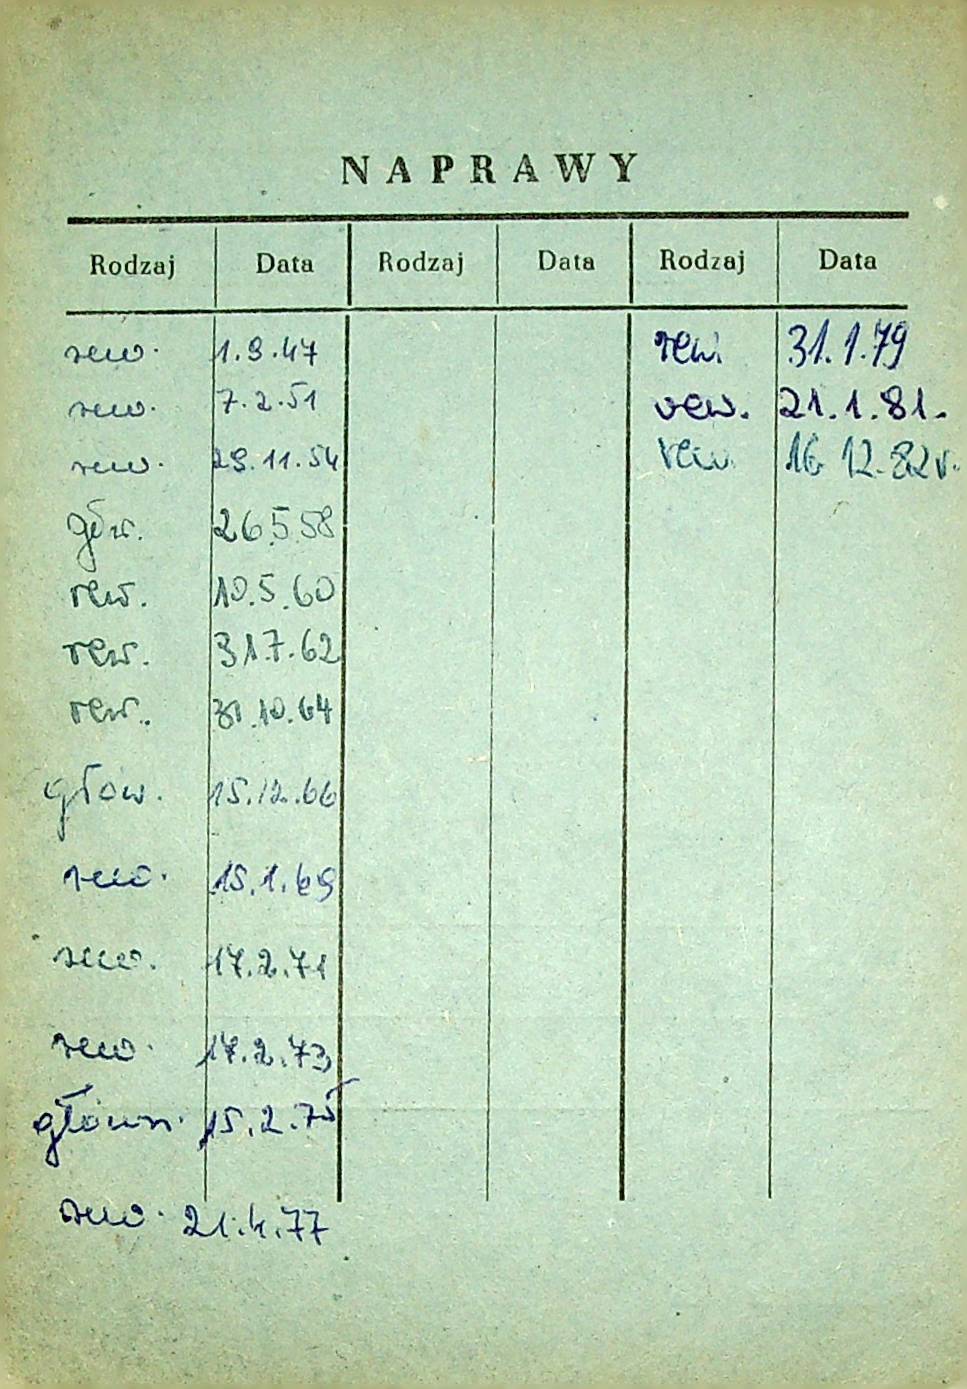 NAPRAWY
Rodzaj Data Rodzaj Data Rodzaj Data
rew. 1.9.47 rew. 31.1.79
rew. 7.2.51 rew. 21.1.81.
rew. 29.11.54 rew. 16 12.82r.
głw. 26.5.58
rew. 10.5.60
rew. 31.7.62
rew. 31.10.64
głow. 15.12.66
rew. 15.1.69
rew. 17.2.71
rew. 17.2.73
główn. 15.2.75
rew. 21.4.77